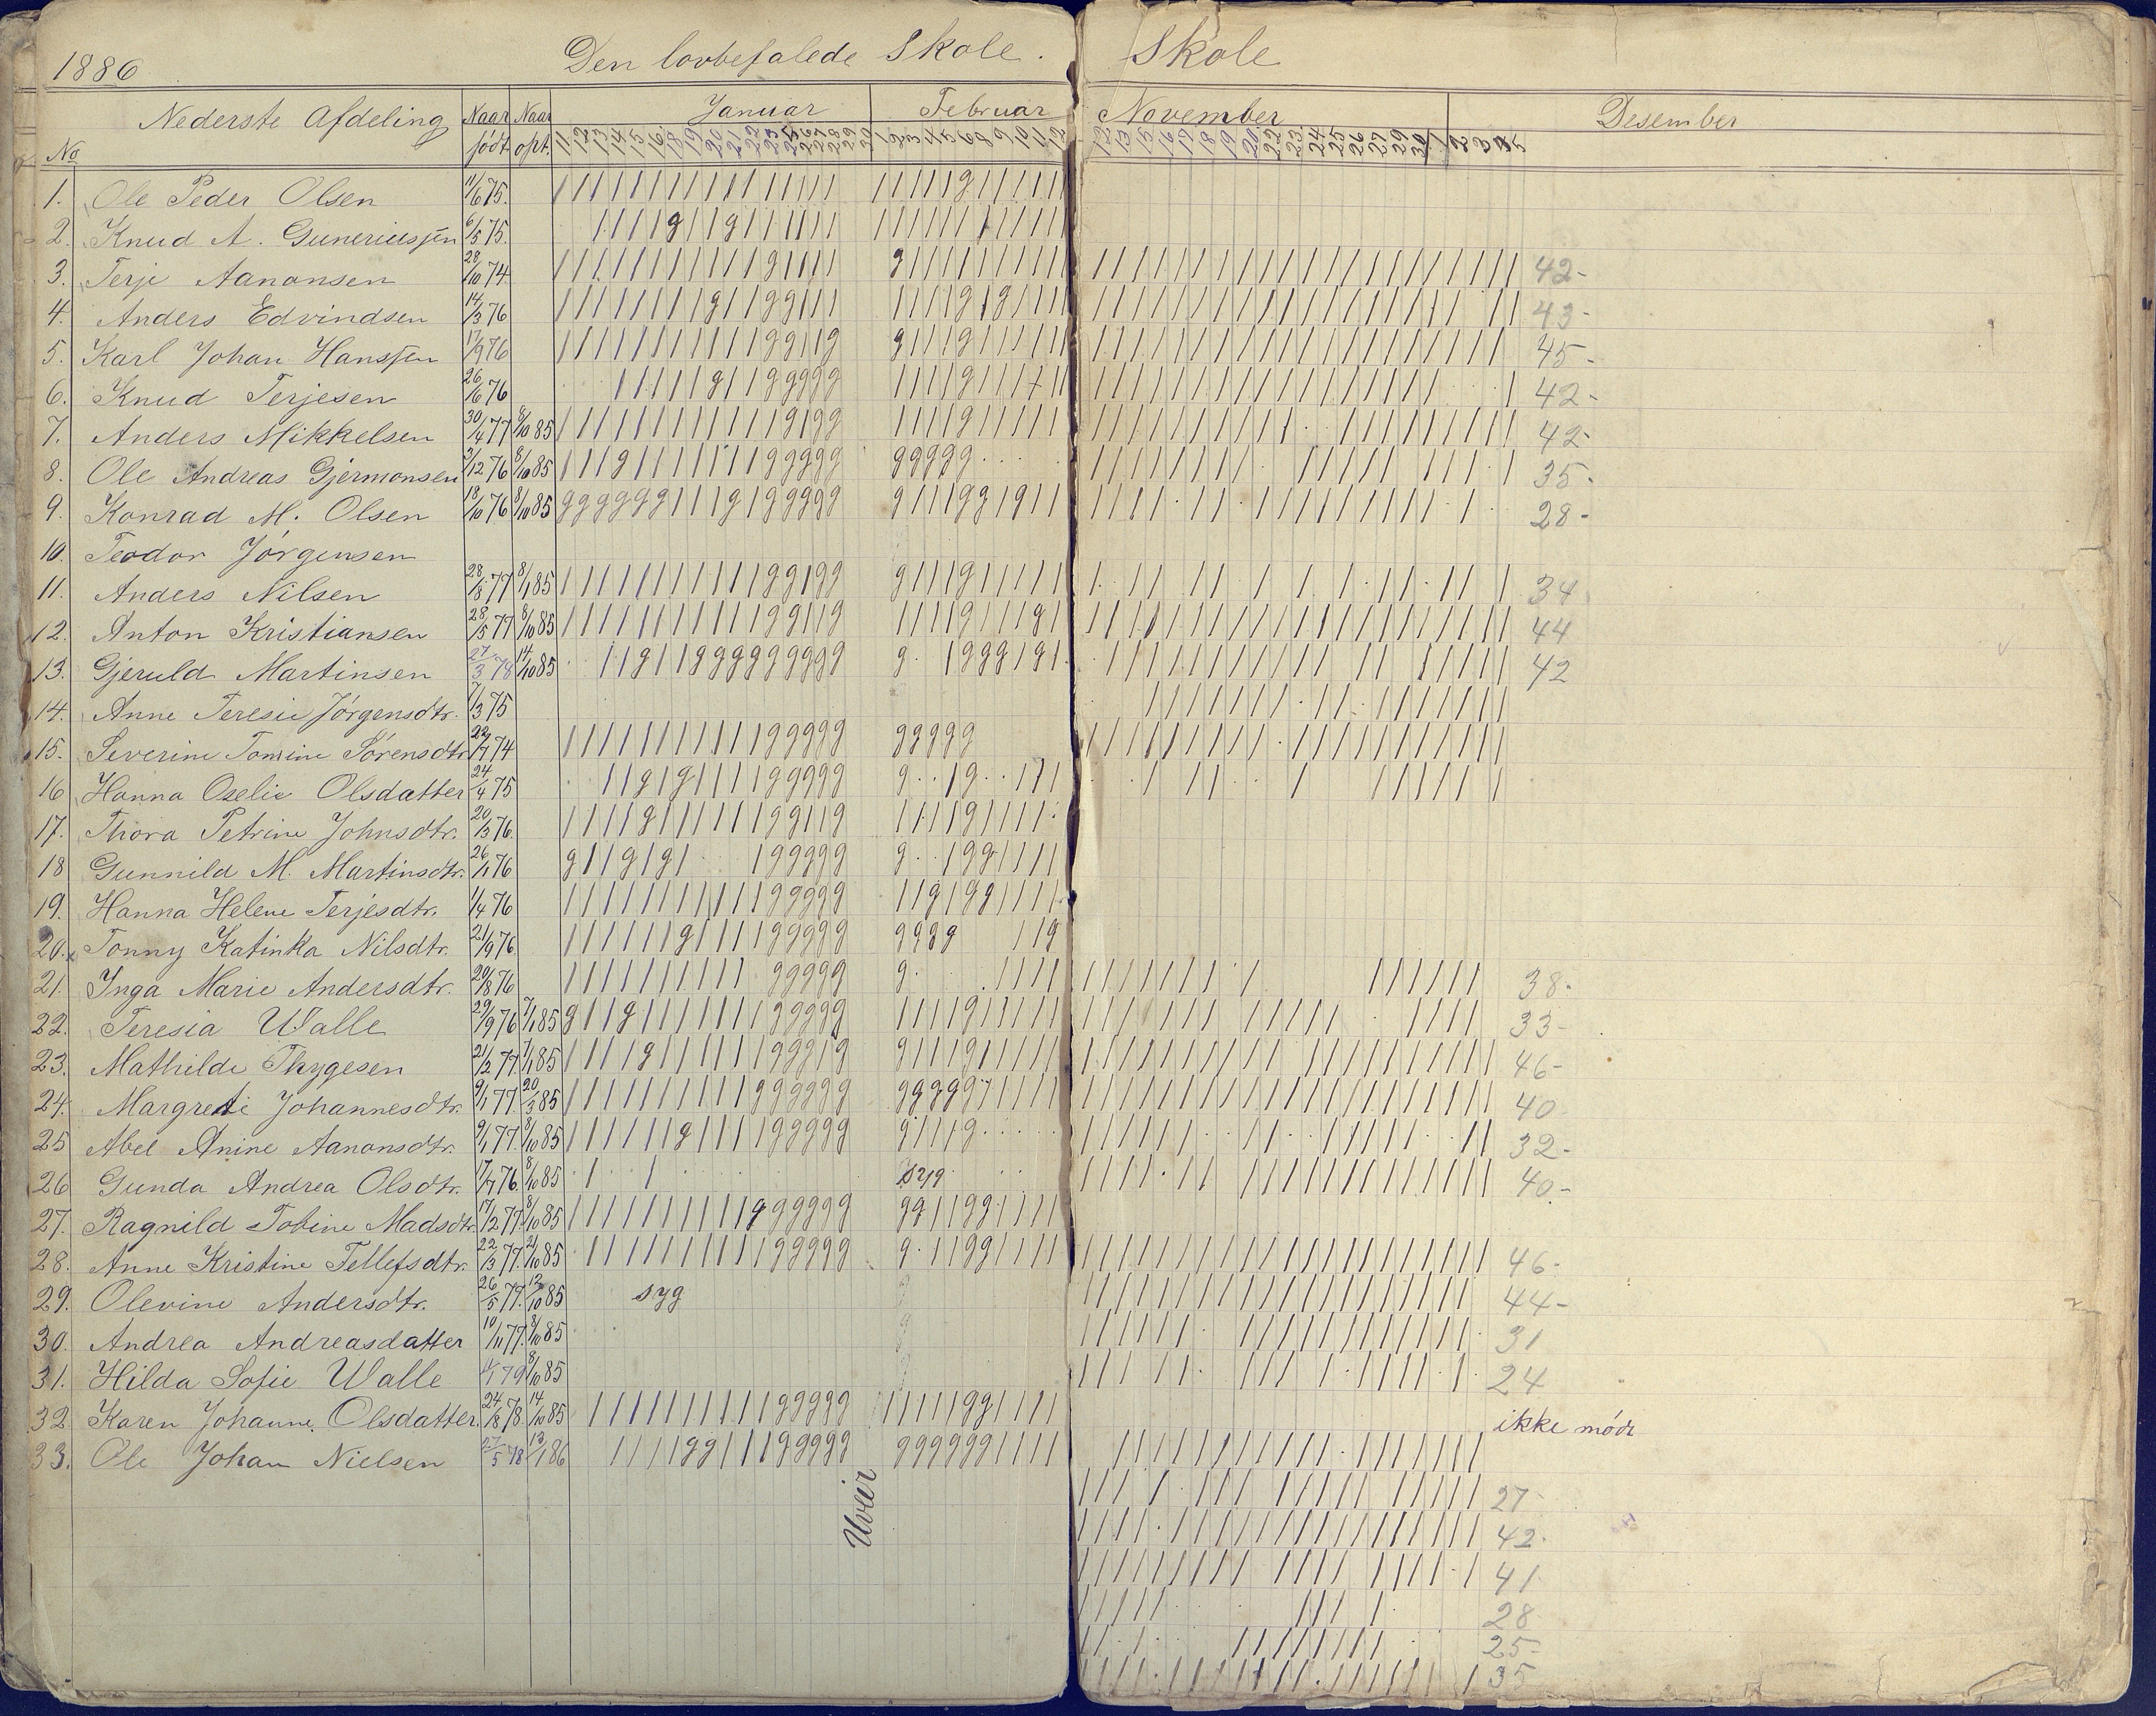 1886 Den lovbefalede Skole. Skole
Nederste Afdeling Naar Naar Januar Februar November Desember
No födt opt. 11 12 13 14 15 16 18 19 20 21 22 23 25 26 27 28 29 30 1 2 3 4 5 6 8 9 10 11 12
1. Ole Peder Olsen 11/6 75.
2. Knud A. Guneriussen 6/5 75.
3. Terje Aanonsen 28/10 74. 42-
4. Anders Edvindsen 14/3 76 43-
5. Karl Johan Hanssen 17/9 76 45-
6. Knud Terjesen 26/6 76 42-
7. Anders Mikkelsen 30/4 77 8/10 85 42-
8. Ole Andreas Gjermonsen 3/12 76 8/10 85 35-
9. Konrad M. Olsen 18/10 76 8/10 85 28-
10. Teodor Jörgensen
11. Anders Nilsen 28/8 77 8/1 85 34
12. Anton Kristiansen 28/5 77 8/10 85 44
13. Gjeruld Martinsen 27/3 78 14/10 85 42
14. Anne Teresie Jörgensdtr. 7/3 75
15. Severine Tomine Sörensdtr 22/7 74
16 Hanna Oselie Olsdatter 24/4 75
17. Thora Petrine Johnsdtr. 20/3 76.
18 Gunnild M. Martinsdtr. 26/1 76
19. Hanna Helene Terjesdtr. 1/4 76
20. Tonny Katinka Nilsdtr. 21/9 76
21. Inga Marie Andersdtr. 20/8 76 38-
22. Teresia Walle 29/9 76 7/1 85 33-
23. Mathilde Thygesen 21/2 77. 7/1 85 46-
24. Margrete Johannesdtr. 9/1 77. 20/3 85 40
25 Abel Anine Aanonsdtr. 9/1 77. 8/10 85 32-
26 Gunda Andrea Olsdtr. 17/7 76. 8/10 85 syg 40-
27. Ragnild Tobine Madsdtr. 17/12 77. 8/10 85
28. Anne Kristine Tellefsdtr. 22/3 77. 21/10 85 46-
29. Olevine Andersdtr. 26/5 77. 12/10 85 syg 44-
30. Andrea Andreasdatter 10/11 77. 8/10 85 31
31. Hilda Sofie Walle 79 8/10 85 24
32. Karen Johanne Olsdatter 24/8 78. 14/10 85 ikke mödt
33. Ole Johan Nielsen 27/5 78 13/1 86
Uveir
27-
42-
41
28
25-
35